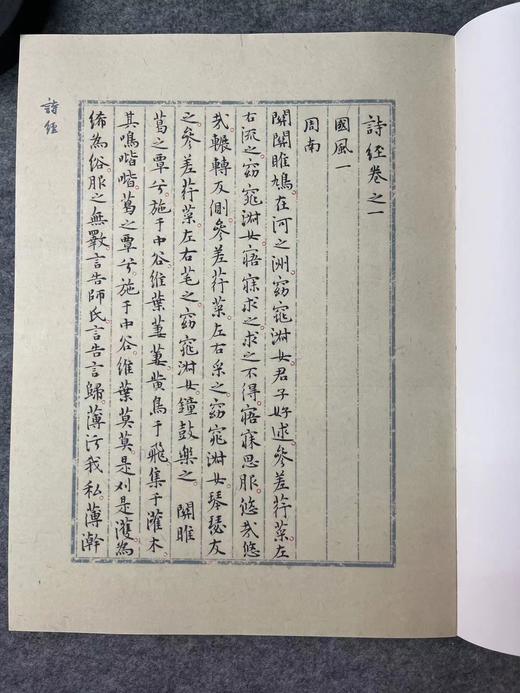 詩經
詩經卷之一
國風一
周南
關關雎鳩。在河之洲。窈窕淑女。君子好逑。參差荇菜。左
右流之。窈窕淑女。寤寐求之。求之不得。寤寐思服。悠哉悠
哉。輾轉反側。參差荇菜。左右采之。窈窕淑女。琴瑟友
之。參差荇菜。左右芼之。窈窕淑女。鐘鼓樂之。 關雎
葛之覃兮。施于中谷。維葉萋萋。黃鳥于飛。集于灌木。
其鳴喈喈。葛之覃兮。施于中谷。維葉莫莫。是刈是濩。為
絺為綌。服之無斁。言告師氏。言告言歸。薄污我私。薄澣